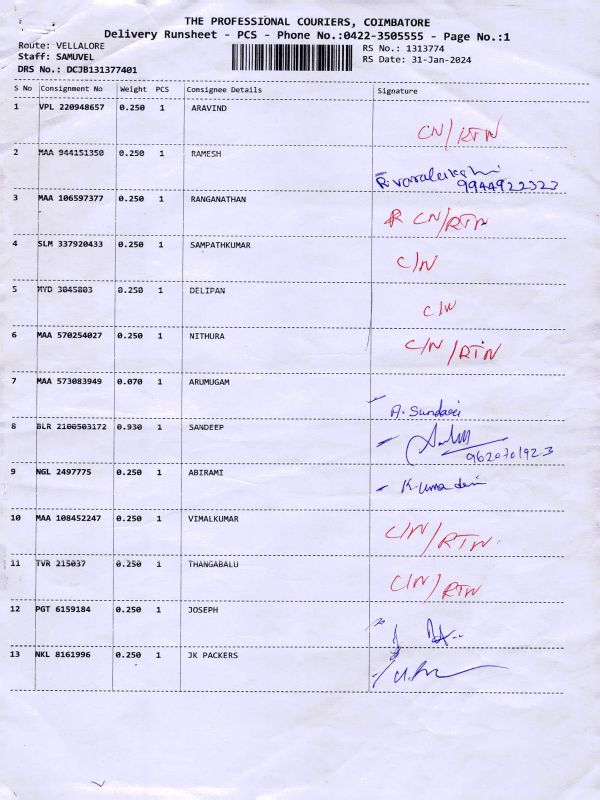 THE PROFESSIONAL COURIERS, COIMBATORE
Delivery Runsheet - PCS - Phone No.:0422-3505555 - Page No.:1
Route: VELLALORE RS No.: 1313774
Staff: SAMUVEL RS Date: 31-Jan-2024
DRS No.: DCJB131377401
S No Consignment No Weight PCS Consignee Details Signature
1 VPL 220948657 0.250 1 ARAVIND
CN/RTN
2 MAA 944151350 0.250 1 RAMESH
R.varalakshi
9944922323
3 MAA 106597377 0.250 1 RANGANATHAN
CN/RTN
4 SLM 337920433 0.250 1 SAMPATHKUMAR
C/N
5 MYD 3045803 0.250 1 DELIPAN
C/N
6 MAA 570254027 0.250 1 NITHURA
C/N/RTN
7 MAA 573083949 0.070 1 ARUMUGAM
A. Sundari
8 BLR 2100503172 0.930 1 SANDEEP
9620701923
9 NGL 2497775 0.250 1 ABIRAMI
K.uma devi
10 MAA 108452247 0.250 1 VIMALKUMAR
C/N/RTN.
11 TVR 215037 0.250 1 THANGABALU
C/N/RTN
12 PGT 6159184 0.250 1 JOSEPH
13 NKL 8161996 0.250 1 JK PACKERS